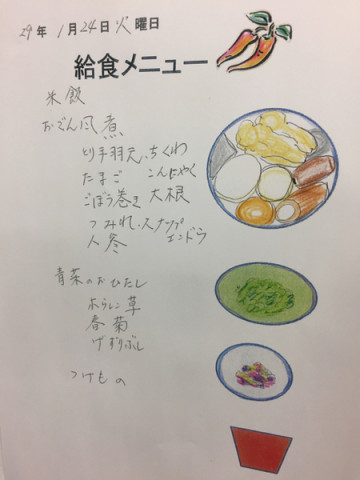 29年 1月24日火曜日
給食メニュー
米飯
おでん風煮
とり手羽元、ちくわ
たまご こんにゃく
ごぼう巻き 大根
つみれ、スナップ
人参 エンドウ
青菜のおひたし
ホウレン草
春菊
けずりぶし
つけもの